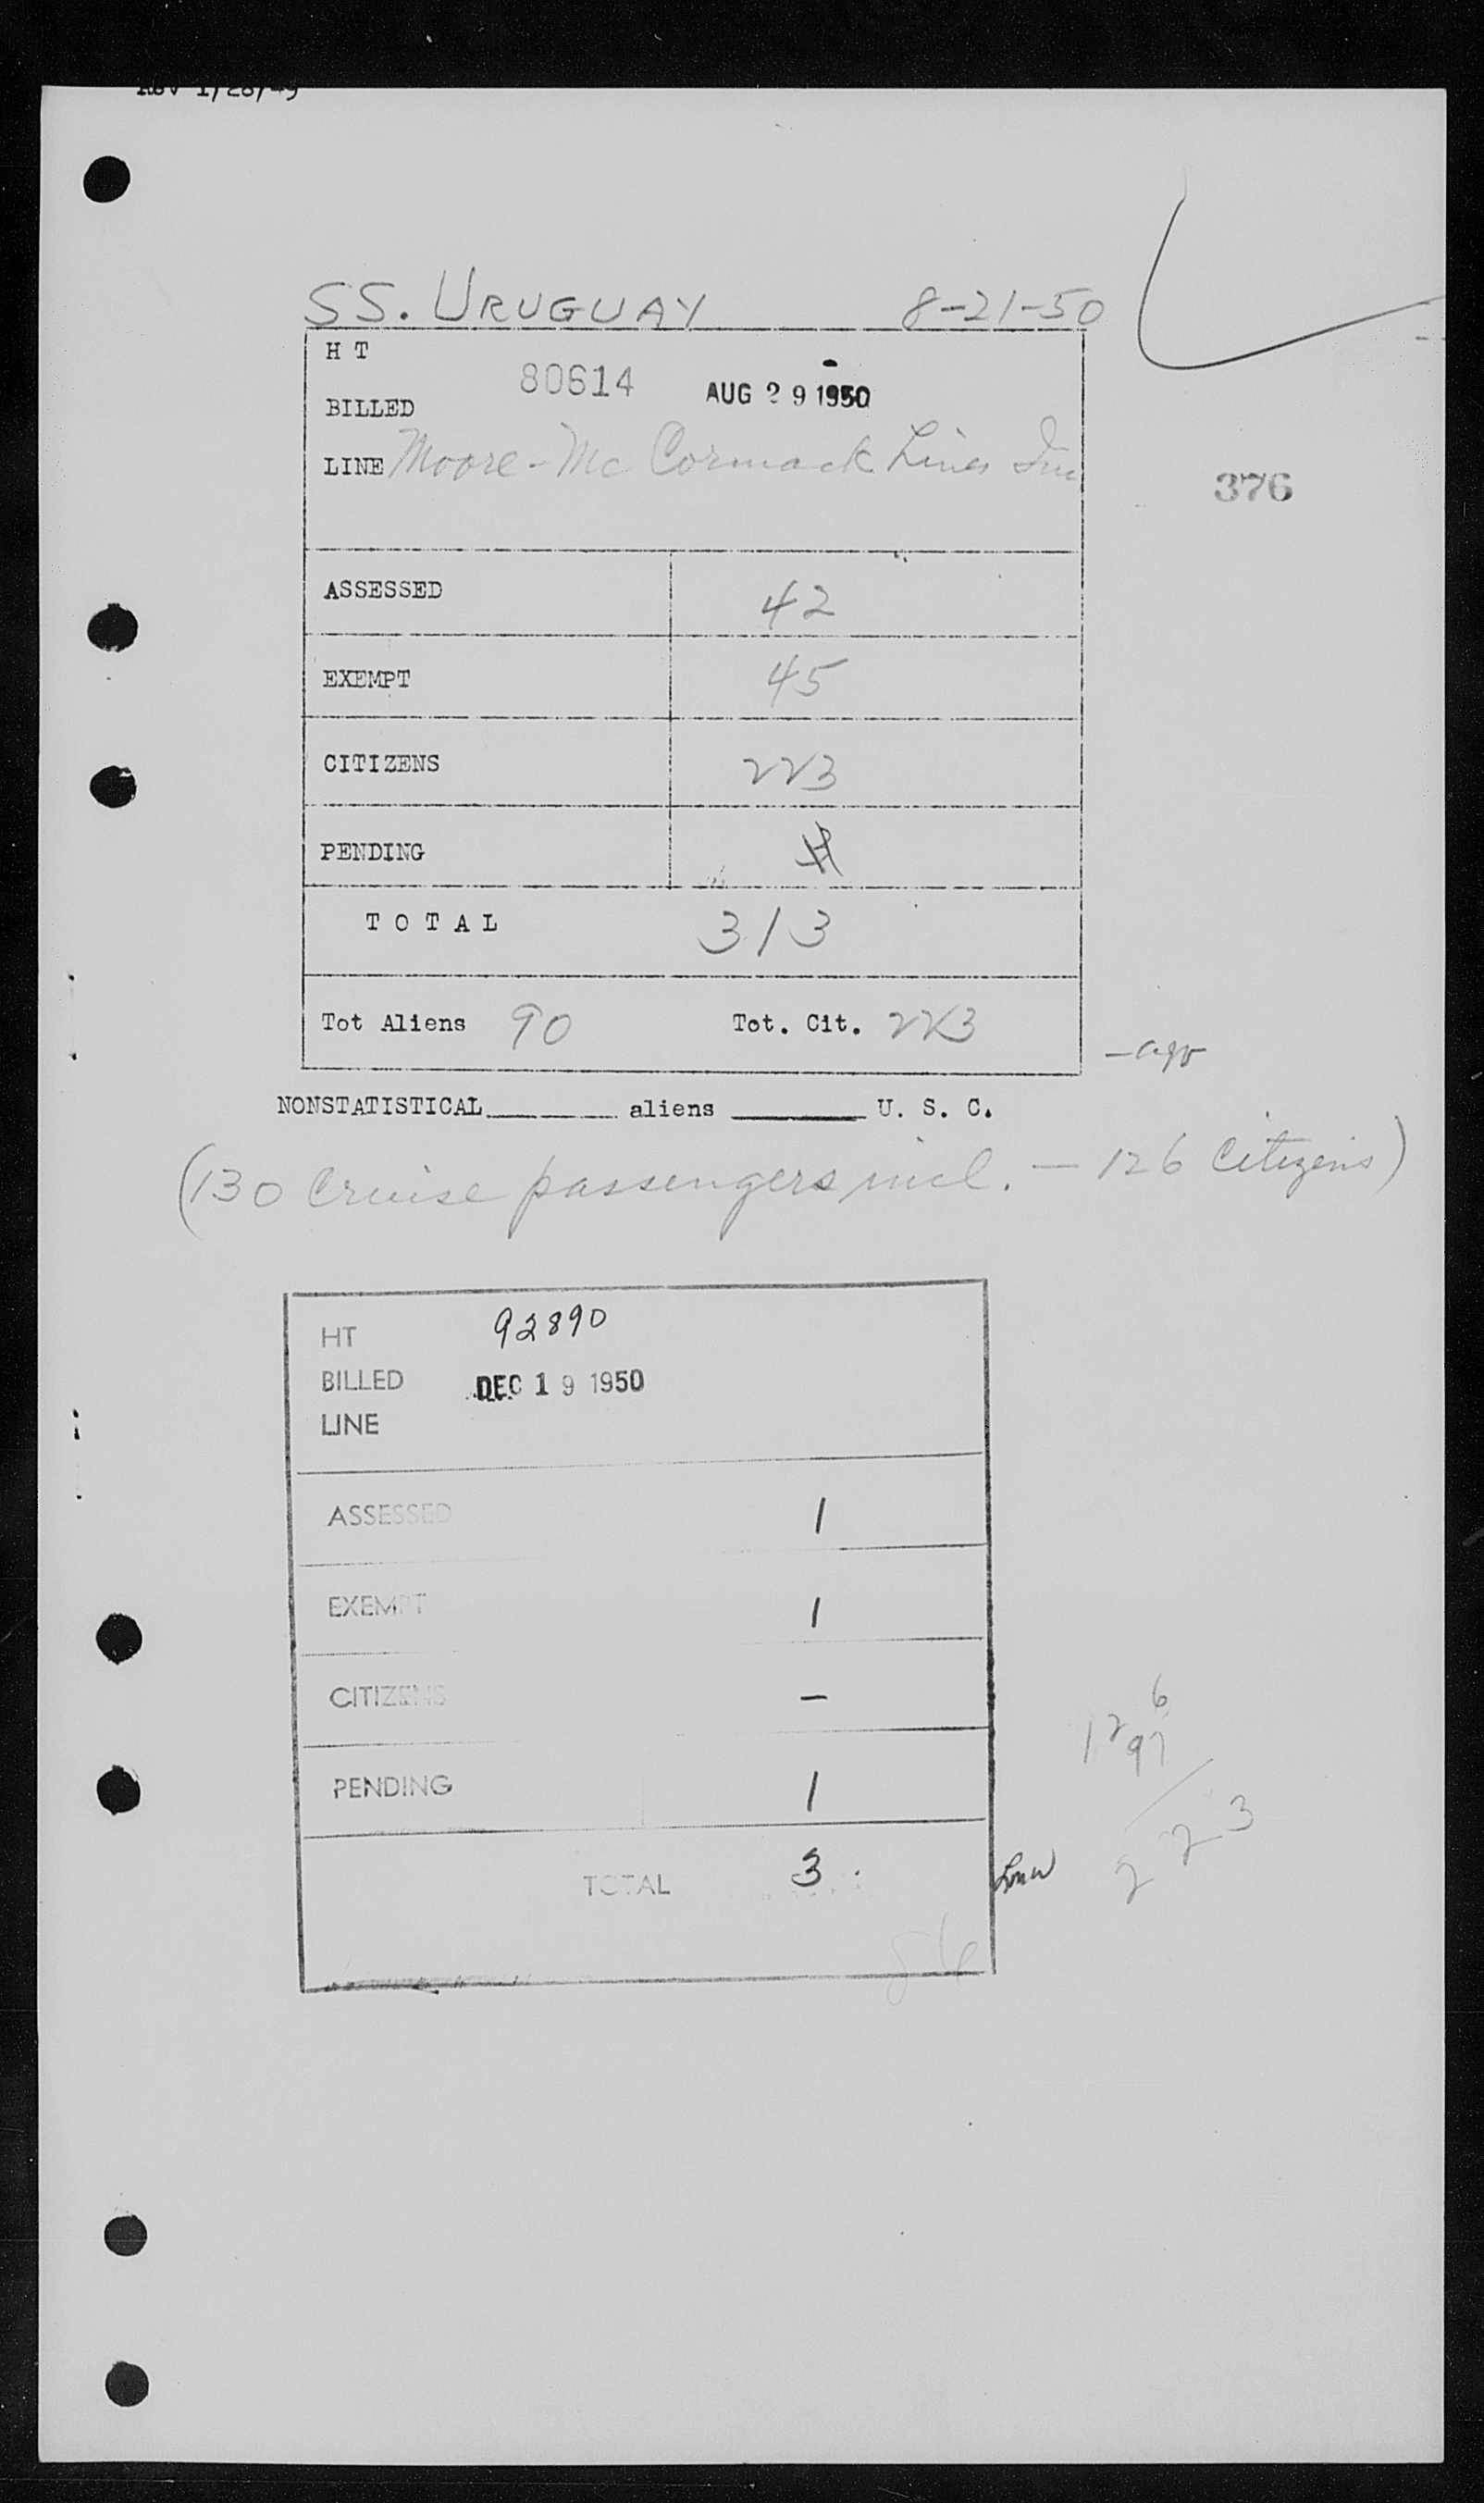 Rev 1/28/49
SS. URUGUAY 8-21-50
H T
80614 AUG 29 1950
BILLED
LINE Moore-McCormack Lines Inc
376
ASSESSED 42
EXEMPT 45
CITIZENS 223
PENDING
T O T A L 313
Tot Aliens 90 Tot. Cit. 223
NONSTATISTICAL aliens U. S. C.
(130 Cruise passengers incl. — 126 Citizens)
HT 92890
BILLED DEC 19 1950
LINE
ASSESSED 1
EXEMPT 1
CITIZENS –
PENDING 1
TOTAL 3.
126
97
223